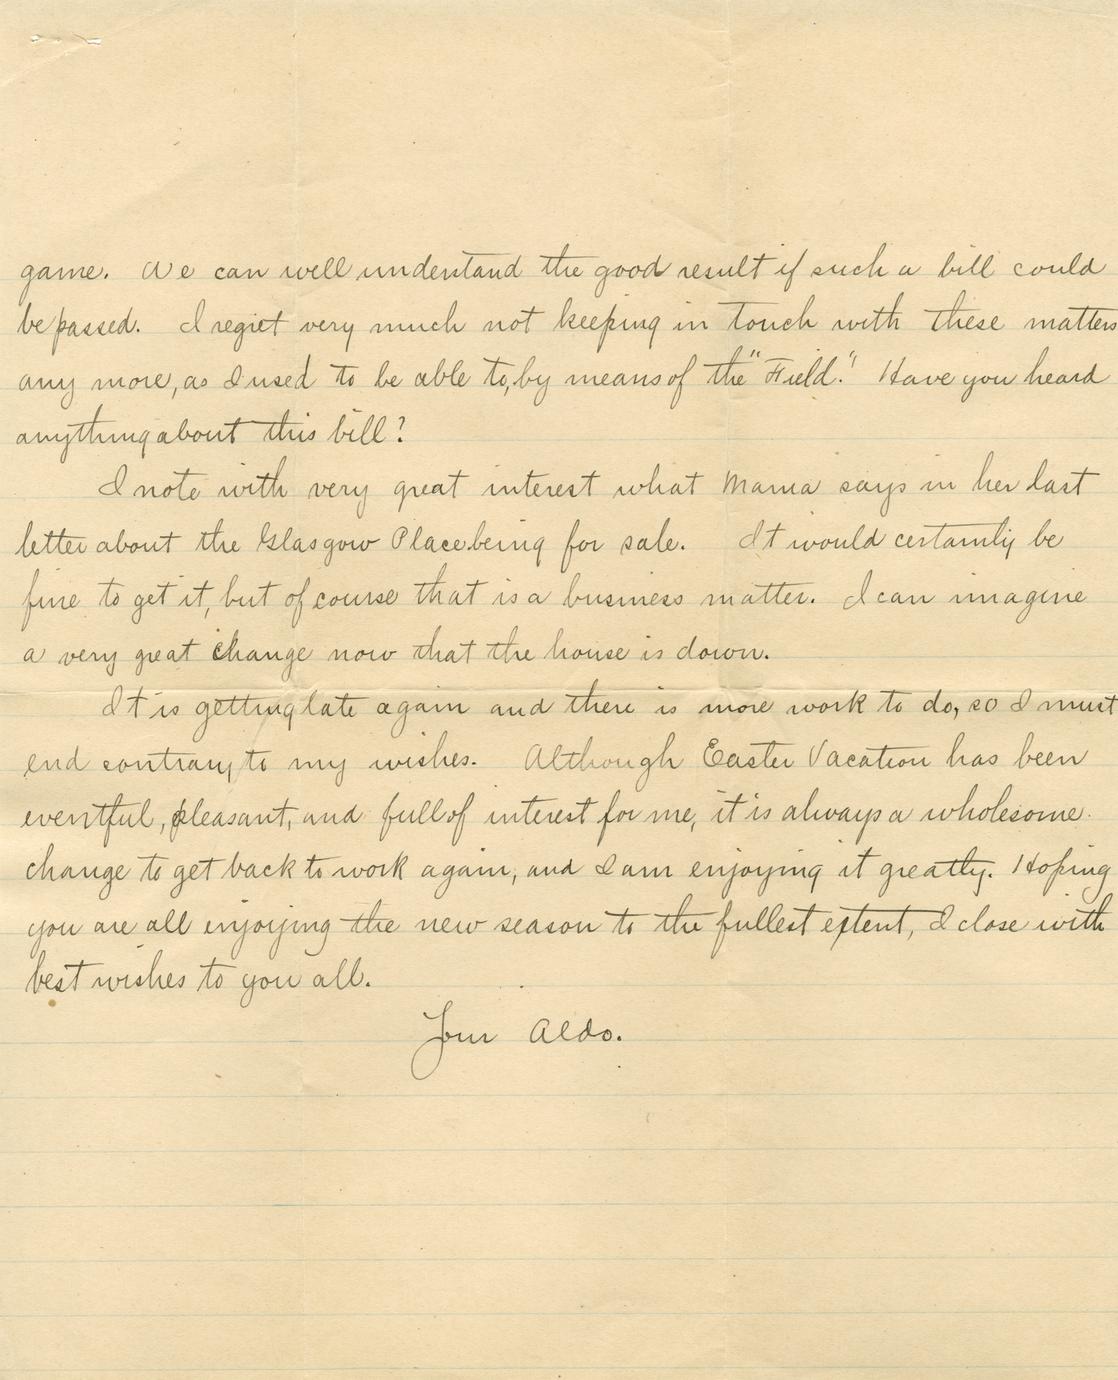 game. We can well understand the good result if such a bill could
be passed. I regret very much not keeping in touch with these matters
any more, as I used to be able to, by means of the "Field." Have you heard
anything about this bill?
I note with very great interest what Mama says in her last
letter about the Glasgow Place being for sale. It would certainly be
fine to get it, but of course that is a business matter. I can imagine
a very great change now that the house is down.
It is getting late again and there is more work to do, so I must
end contrary to my wishes. Although Easter Vacation has been
eventful, pleasant, and full of interest for me, it is always a wholesome
change to get back to work again, and I am enjoying it greatly. Hoping
you are all enjoying the new season to the fullest extent, I close with
best wishes to you all.
Your Aldo.